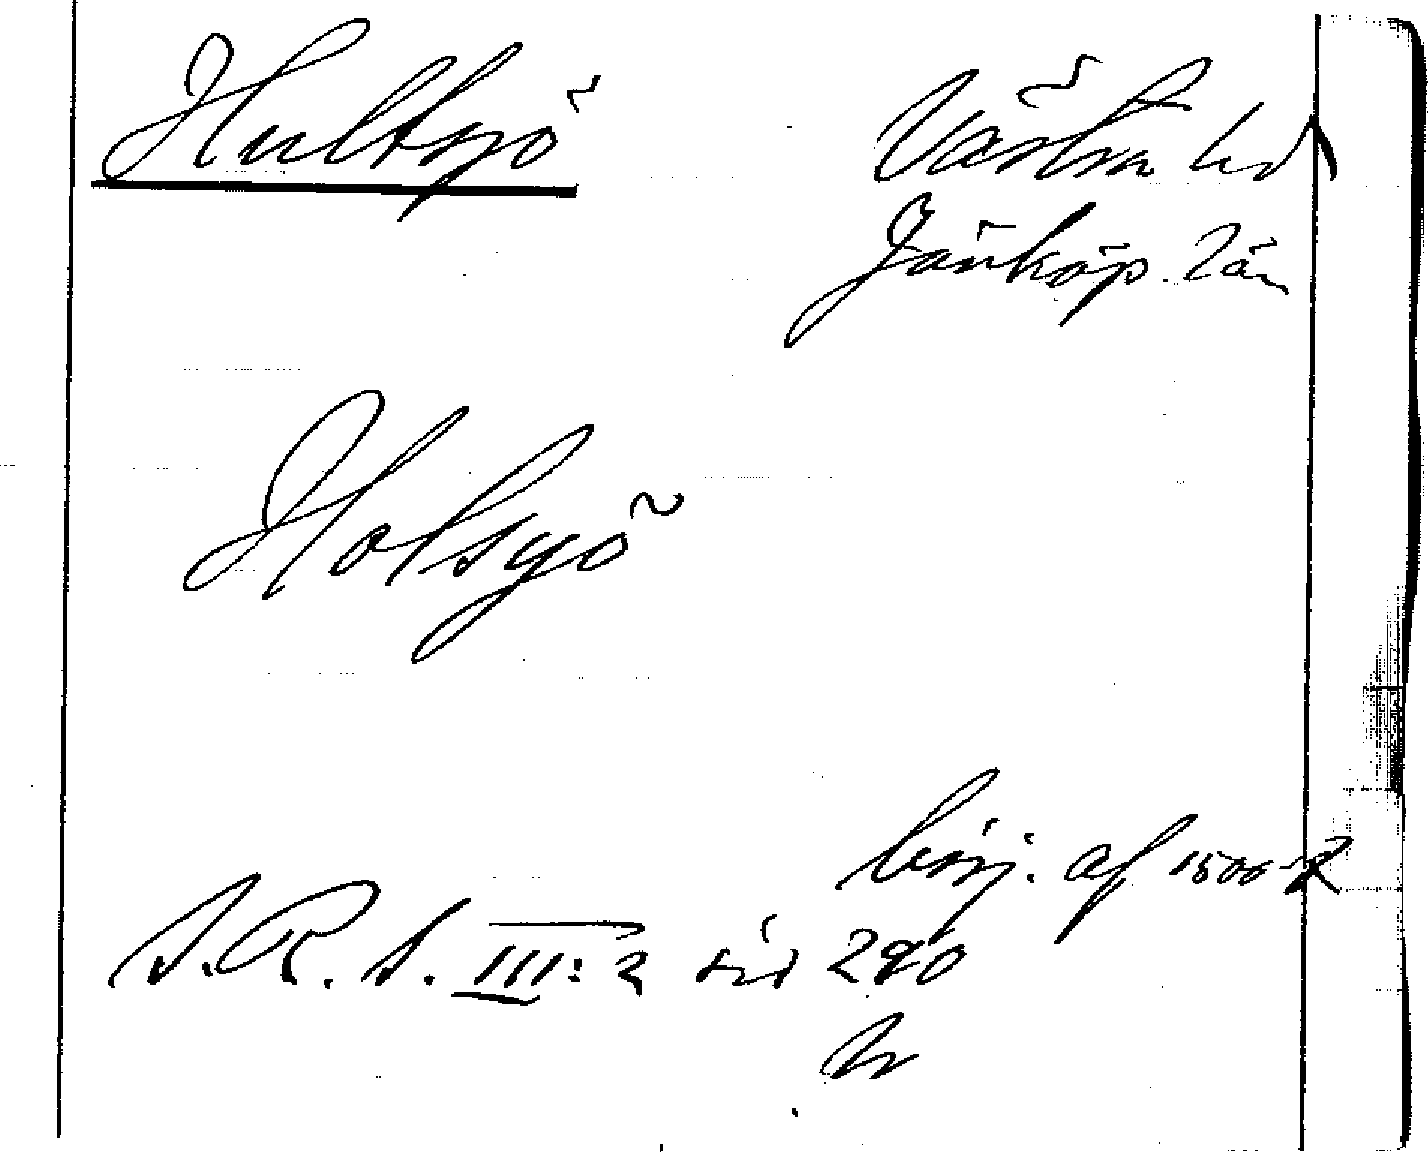 Hultsjö Västra hd
Jönköp. län
Holsyö
börj. af 1500-t
S.R.S. III:2 sid 290